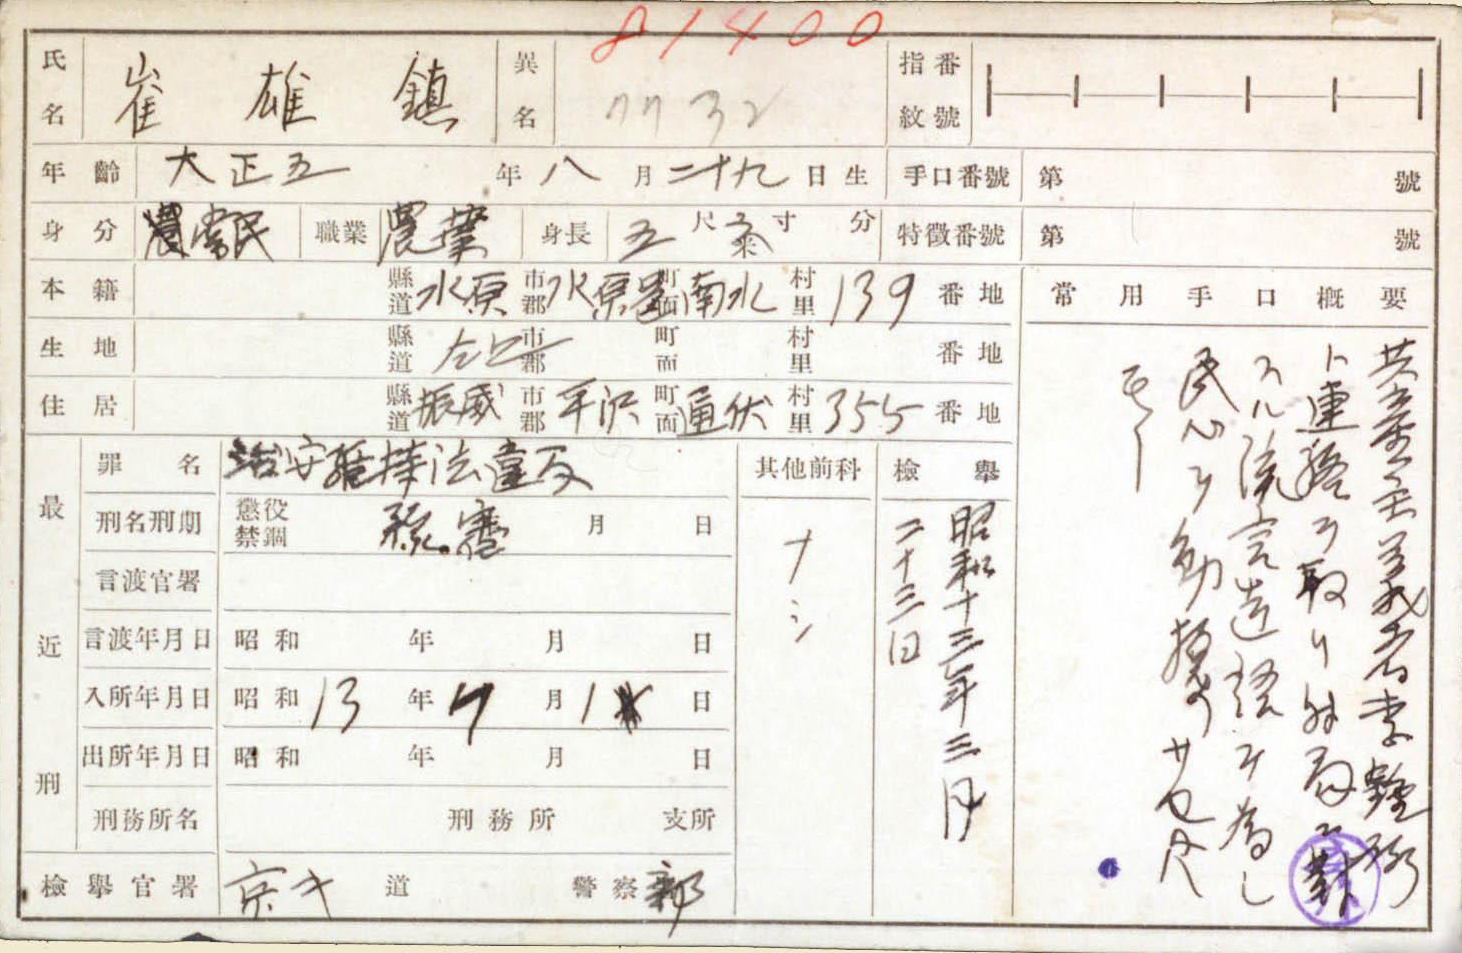 81400
氏名 崔雄鎮 異名 7732 指紋番號
年齡 大正五年八月二十九日生 手口番號 第 號
身分 常民 職業 農業 身長 五尺 寸 分 特徵番號 第 號
本籍 縣道 水原 市郡 水原邑 町面 南水 村里 139 番地
生地 縣道 仝上 市郡 町面 村里 番地
住居 縣道 振威 市郡 平沢 町面 通伏 村里 355 番地
最近刑
罪名 治安維持法違反
刑名刑期 懲役 禁錮 月 日
言渡官署
言渡年月日 昭和 年 月 日
入所年月日 昭和 13 年 7 月 1 日
出所年月日 昭和 年 月 日
刑務所名 刑務所 支所
檢擧官署 京キ 道 警察部
其他前科
ナシ
檢擧
昭和十三年三月
二十三日
常用手口概要
共産主義者李
ト連絡ヲ取リ
スル流言造語ヲ為シ
民心ヲ動揺
モノ